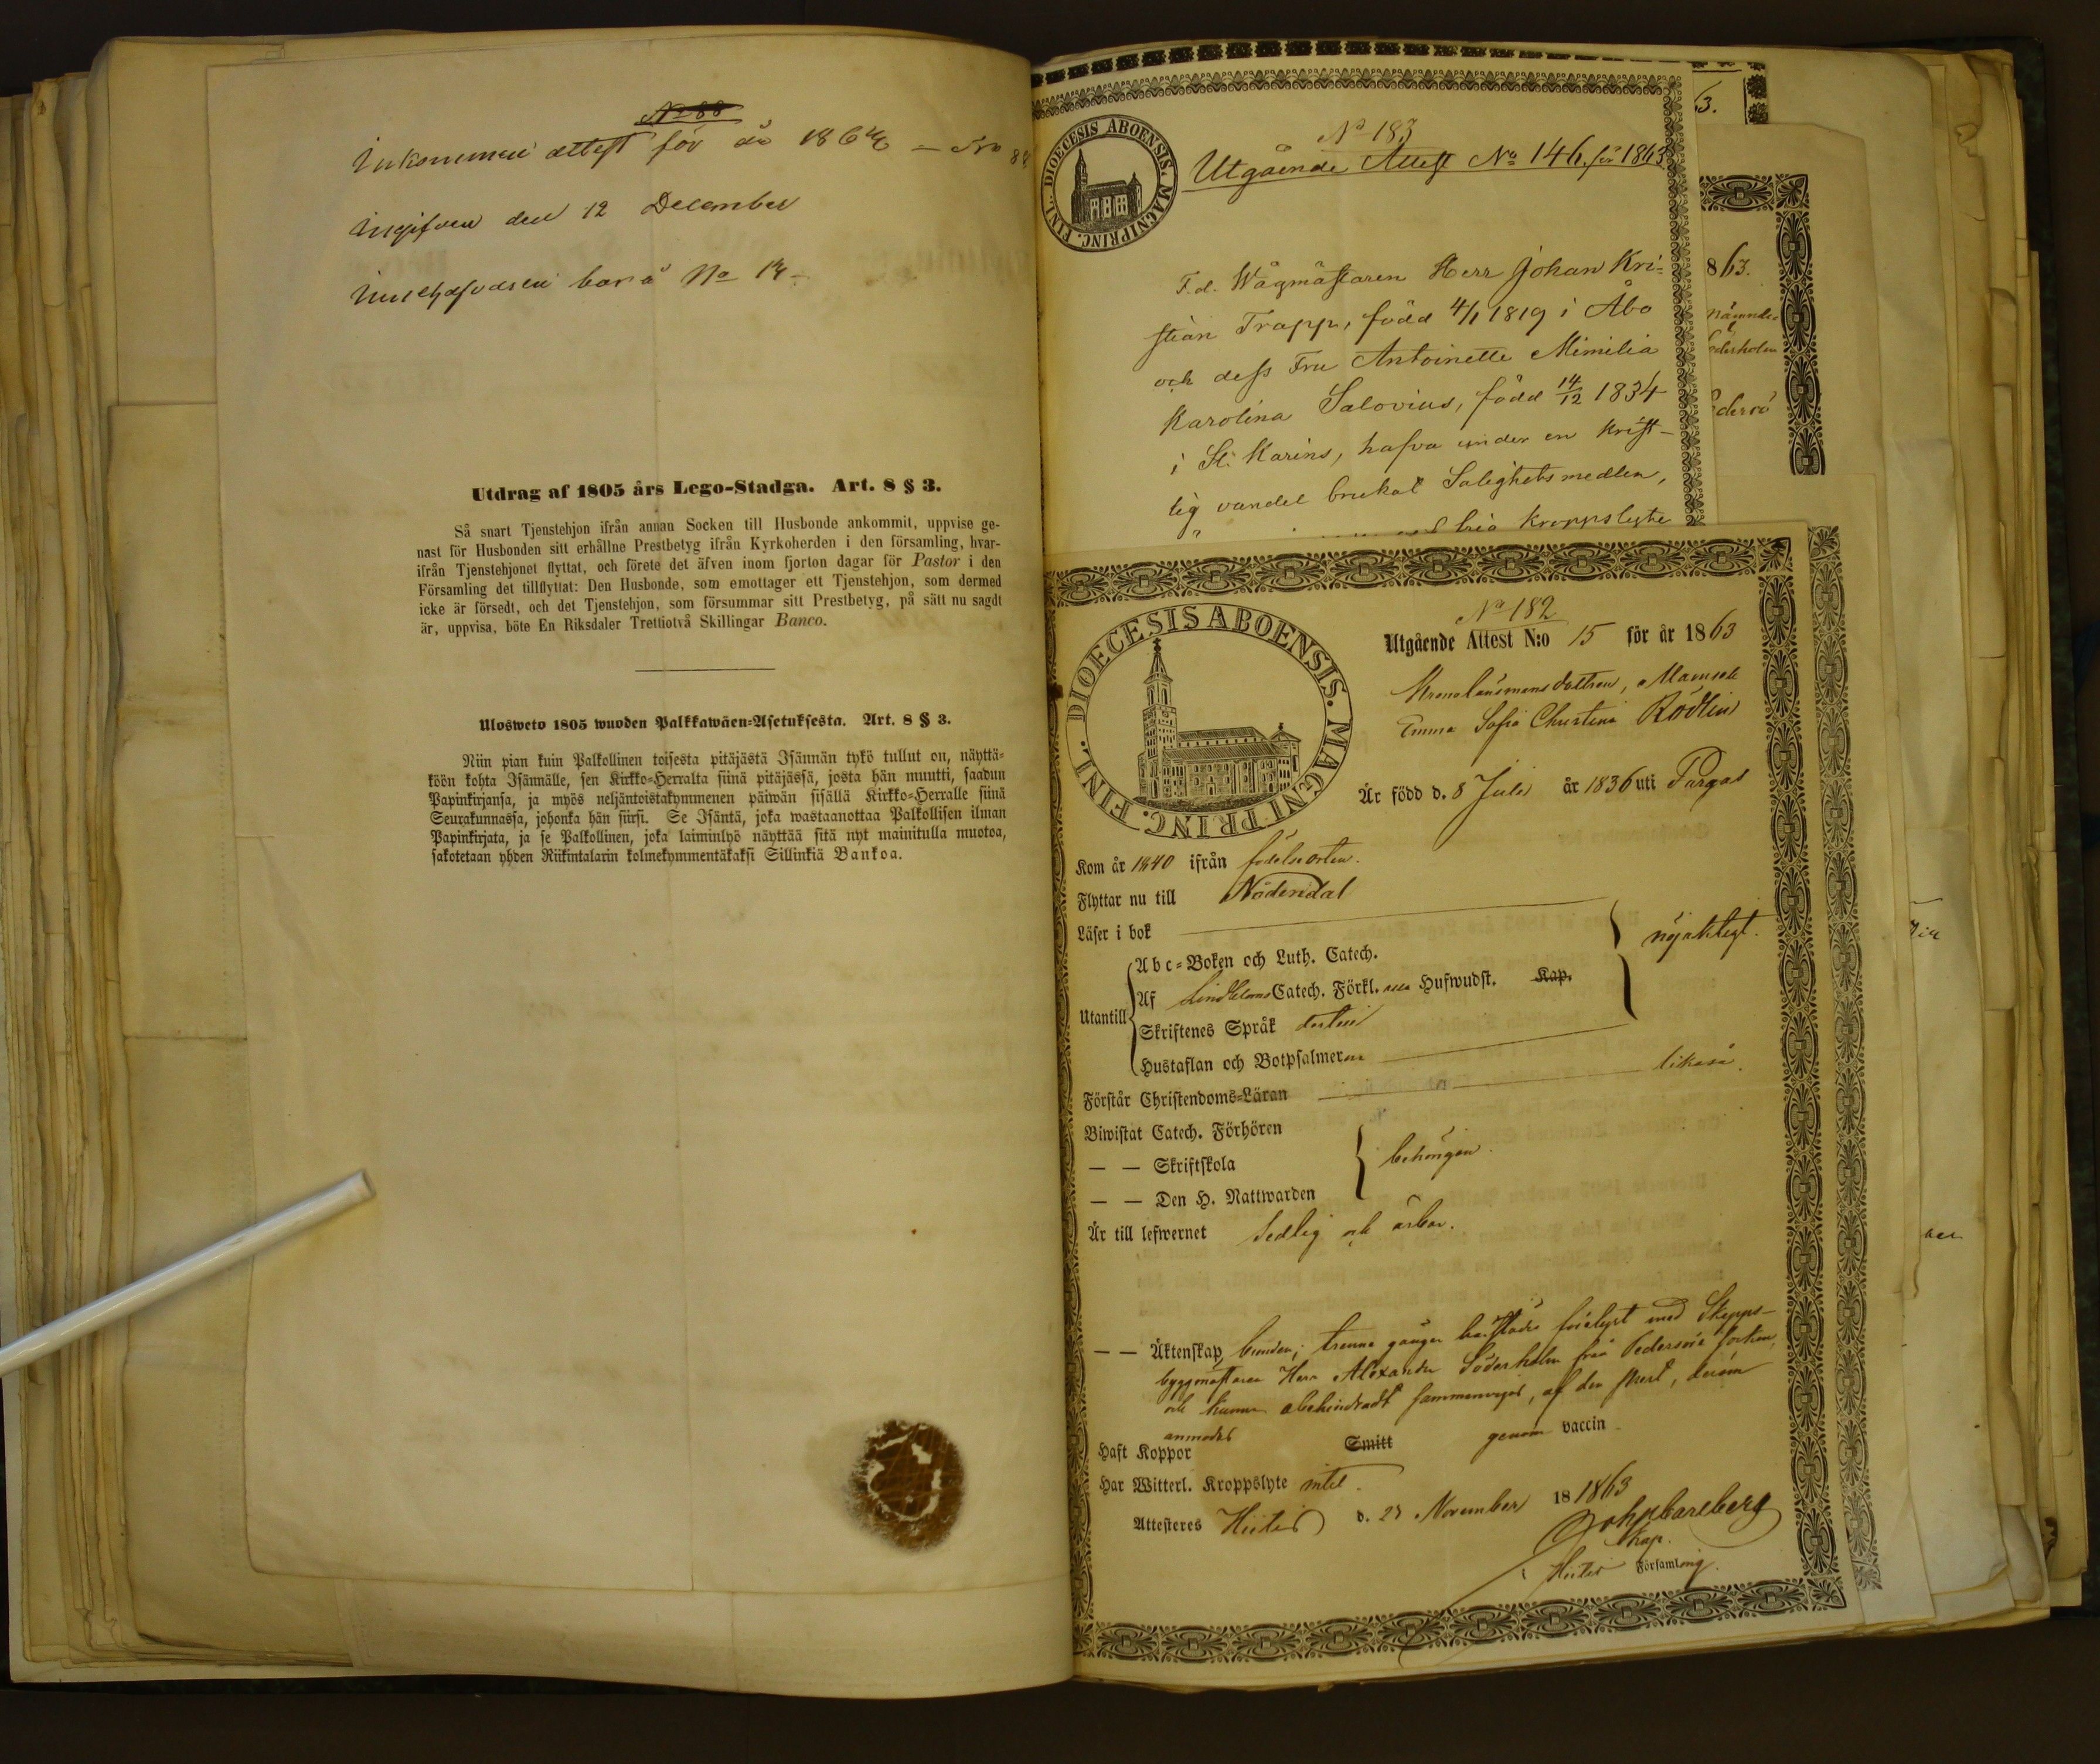 No 88
Inkommen attest för år 1864 – No 88
Ingifven den 12 December
Innehafvaren bor å No 14
Utdrag af 1805 års Lego-Stadga. Art. 8 § 3.
Så snart Tjenstehjon ifrån annan Socken till Husbonde ankommit, uppvise ge-
nast för Husbonden sitt erhållne Prestbetyg ifrån Kyrkoherden i den församling, hvar-
ifrån Tjenstehjonet flyttat, och förete det äfven inom fjorton dagar för Pastor i den
Församling det tillflyttat: Den Husbonde, som emottager ett Tjenstehjon, som dermed
icke är försedt, och det Tjenstehjon, som försummar sitt Prestbetyg, på sätt nu sagdt
är, uppvisa, böte En Riksdaler Trettiotvå Skillingar Banco.
Ulosweto 1805 wuoden Palkkawäen-Asetuksesta. Art. 8 § 3.
Niin pian kuin Palkollinen toisesta pitäjästä Isännän tykö tullut on, näyttä-
köön kohta Isännälle, sen Kirkko-Herralta siinä pitäjässä, josta hän muutti, saadun
Papinkirjansa, ja myös neljäntoistakymmenen päiwän sisällä Kirkko-Herralle siinä
Seurakunnassa, johonka hän siirsi. Se Isäntä, joka wastaanottaa Palkollisen ilman
Papinkirjata, ja se Palkollinen, joka laiminlyö näyttää sitä nyt mainitulla muotoa,
sakotetaan yhden Riikintalarin kolmekymmentäkaksi Sillinkiä Bankoa.
DIOECESIS ABOENSIS. MAGNI PRINC. FINL.
No 183
Utgående Attest No 146 för 1863
F.d. Wågmästaren Herr Johan Kri-
stian Trapp, född 4/1 1819 i Åbo
och dess Fru Antoinette Mimilia
Karolina Salovius, född 14/12 1834
i St. Karins, hafva under en krist-
lig vandel brukat Salighetsmedlen,
kroppslyte
63.
863.
nämnde
öderholm
edersö
DIOECESIS ABOENSIS. MAGNI PRINC. FINL.
No 182
Utgående Attest N:o 15 för år 1863
Kronolänsmansdottren, Mamsell
Emma Sofia Christina Rödlin
Är född d. 8 Julii år 1836 uti Pargas
Kom år 1840 ifrån födelseorten.
Flyttar nu till Nådendal
Läser i bok
Abc-Boken och Luth. Catech.
Utantill Af Lindbloms Catech. Förkl. alla Hufwudst. Kap. nöjaktigt.
Skriftenes Språk
Hustaflan och Botpsalmerna
Förstår Christendoms-Läran likaså.
Biwistat Catech. Förhören
— — Skriftskola behörigen.
— — Den H. Nattwarden
Är till lefwernet Sedlig och ärbar.
— — Äktenskap bunden; trenne gånger härstädes förelyst med Skepps-
byggmästaren Herr Alexander Söderholm från Pedersöre Socken,
och kunna obehindradt sammanvigas, af den prest, derom
anmodas
Haft Koppor Smitt genom vaccin
Har Witterl. Kroppslyte intet.
Attesteres Hiitis d. 23 November 18 1863
Joh Carlberg
Kap.
i Hiitis Församling.